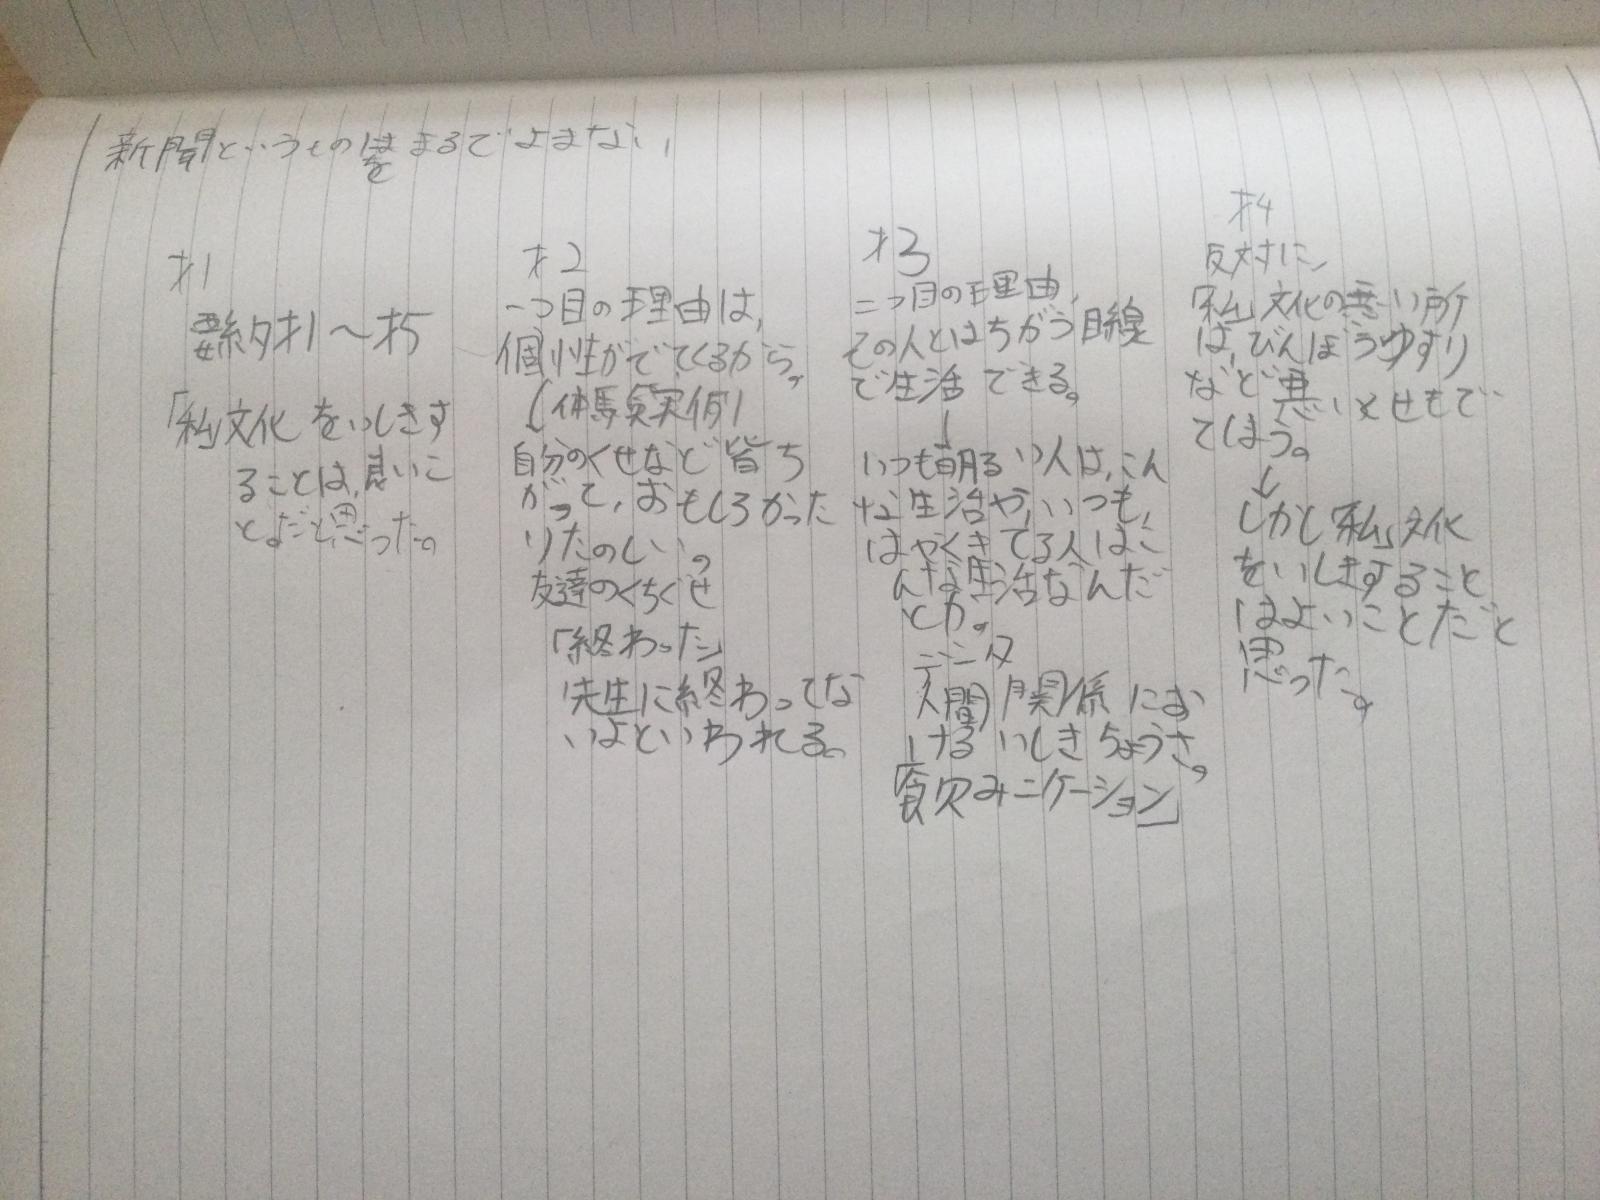 新聞というものはをまるでよまない
才1
要約才1〜才5
「私」文化をいしきす
ることは、良いこ
とだと思った。
才2
一つ目の理由は、
個性がでてくるから。
(体験実例)
自分のくせなど皆ち
がって、おもしろかった
りたのしい。
友達のくちぐせ
「終わった」
先生に終わってな
いよといわれる。
才3
二つ目の理由、
その人とはちがう目線
で生活できる。
↓
いつも明るい人は、こん
な生活や、いつも、
はやくきてる人はこ
んな生活なんだ
とか。
データ
人間関係にお
けるいしきちょうさ。
「飲みニケーション」
才4
反対に、
「私」文化の悪い所
は、びんぼうゆすり
など悪いくせもで
てしまう。
↓
しかし「私」文化
をいしきすること
はよいことだと
思った。